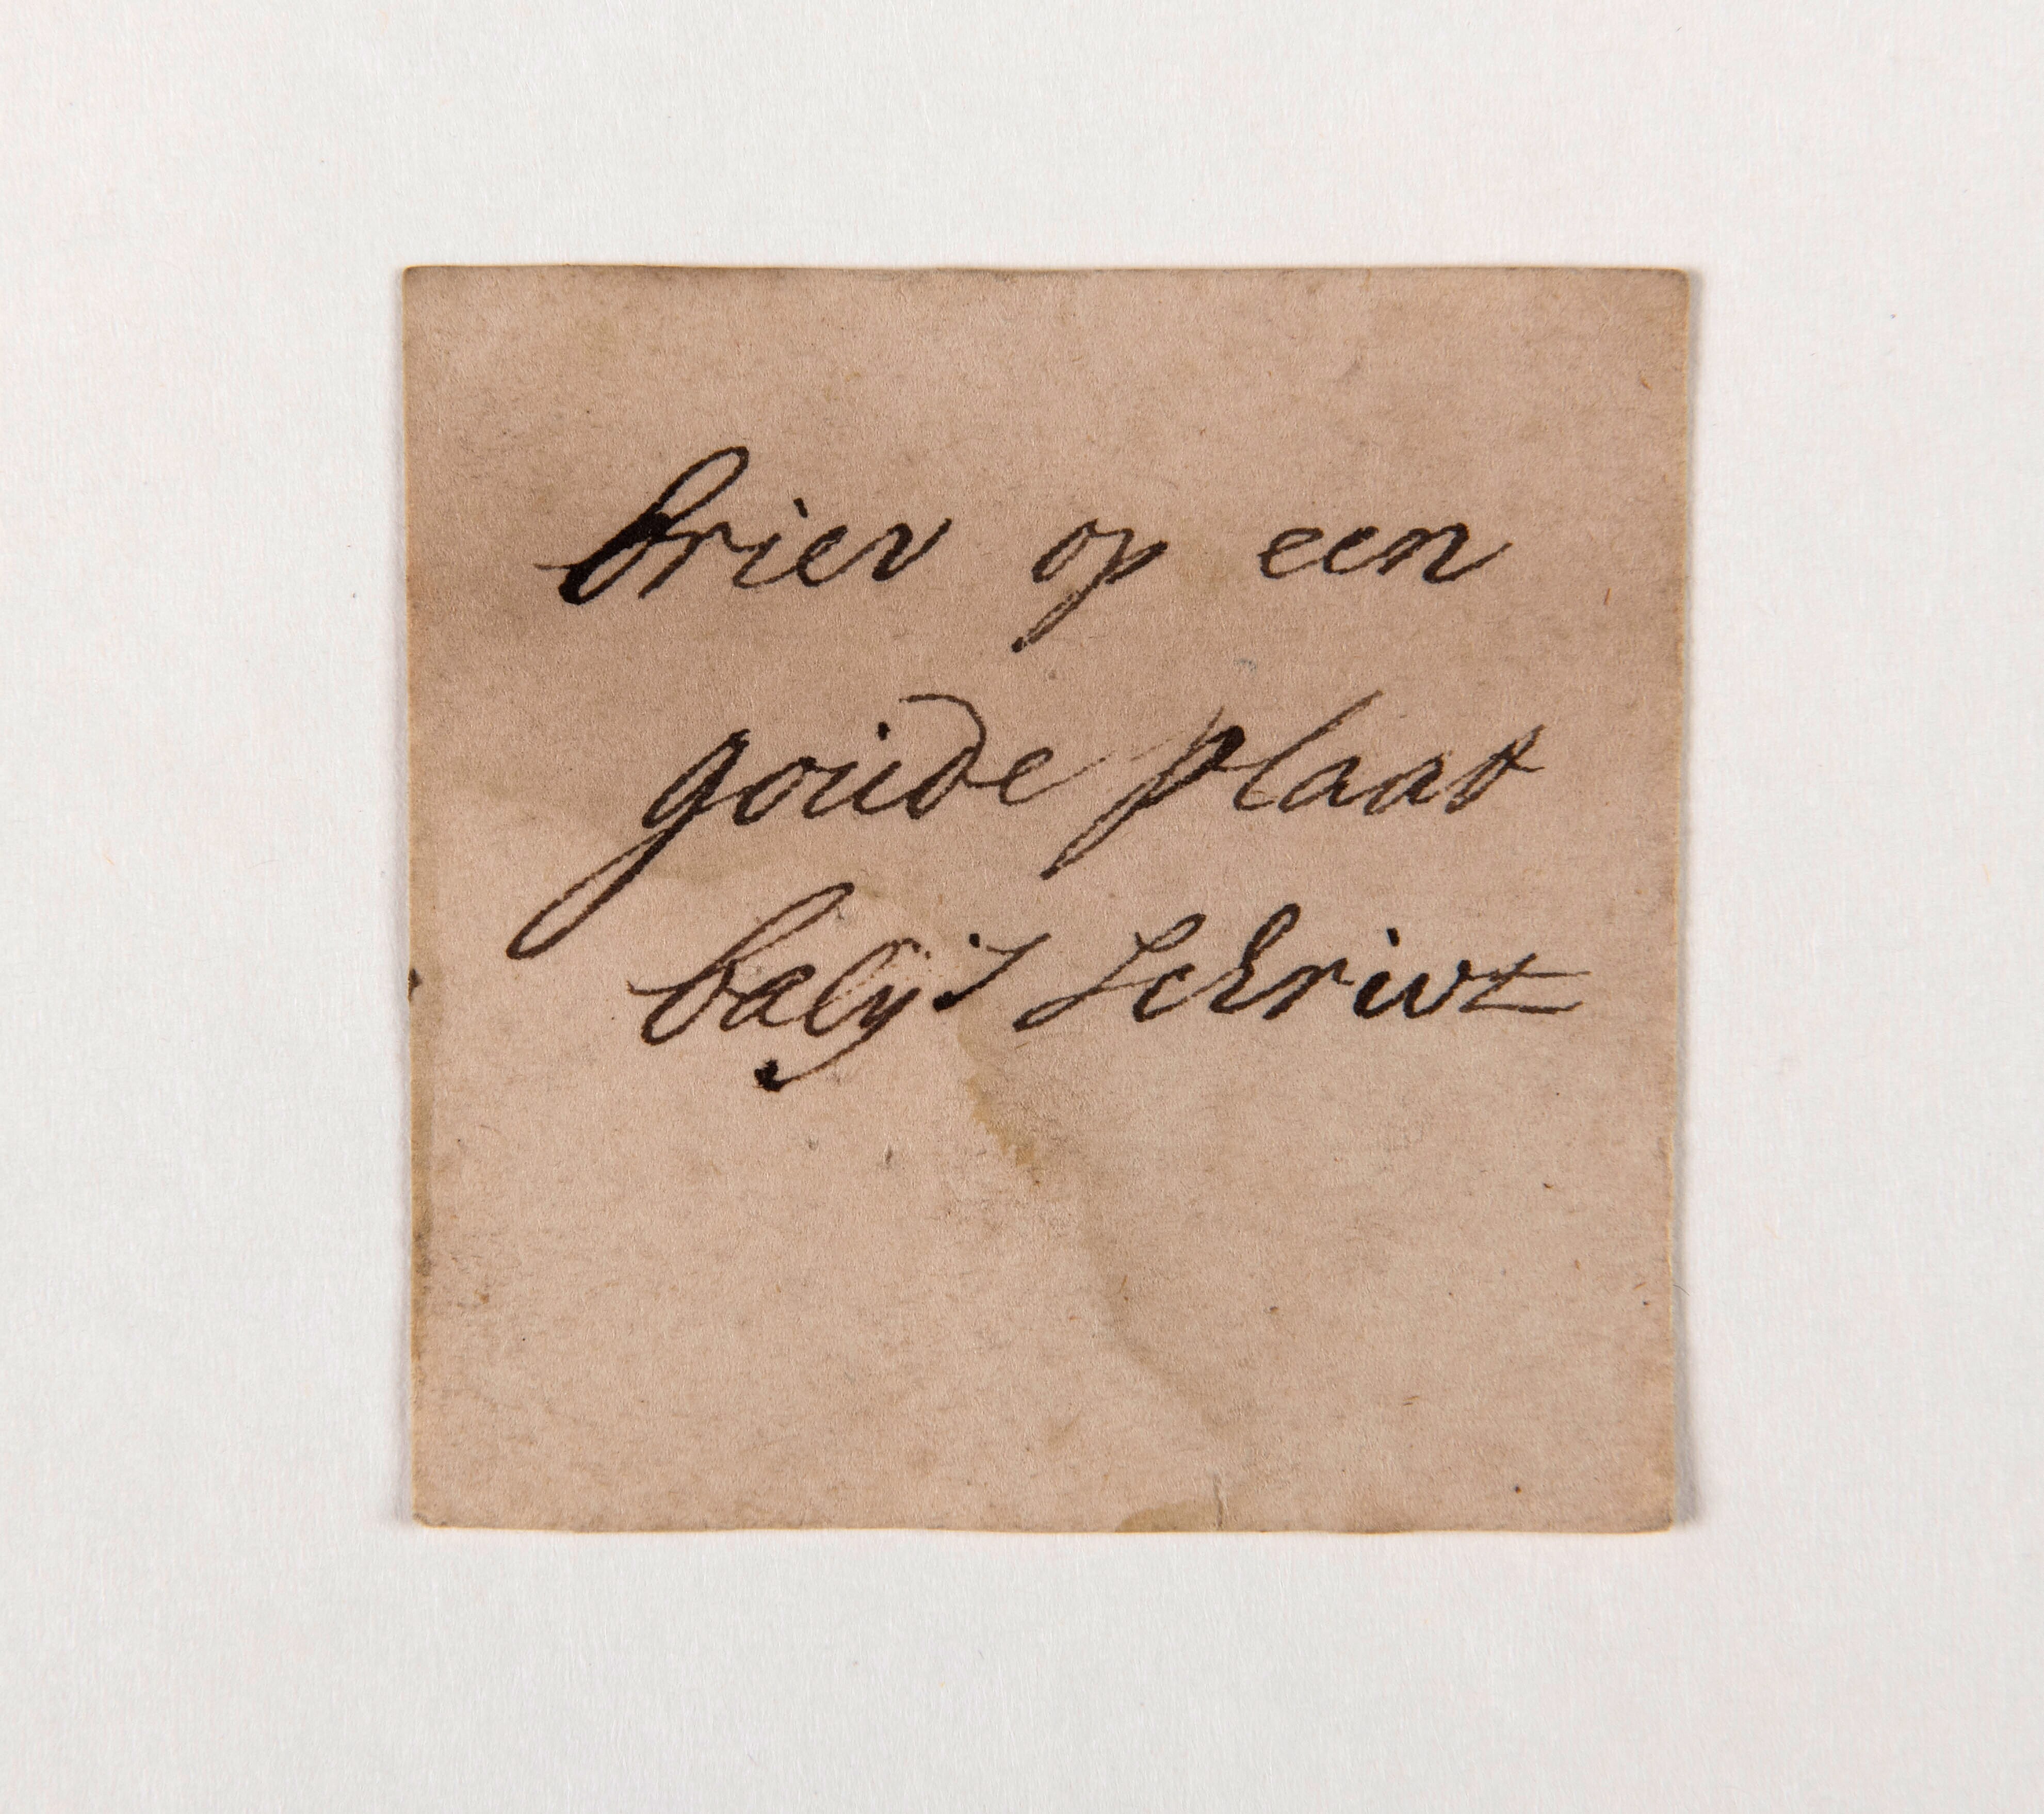 briev op een
goude plaat
balys schrivt